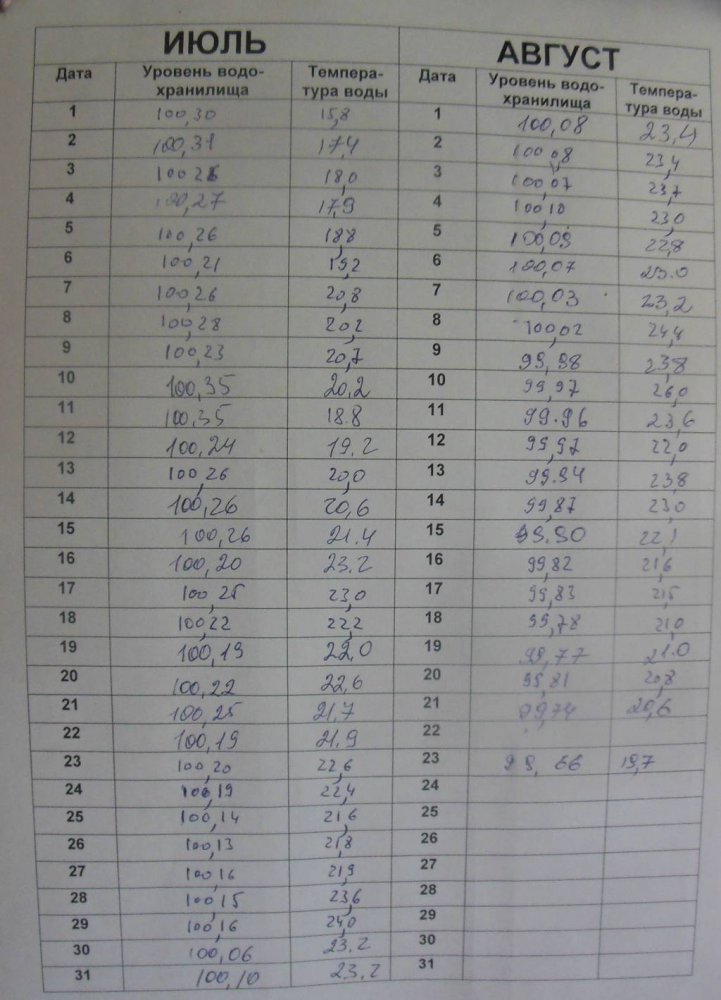 ИЮЛЬ АВГУСТ
Дата Уровень водо- Темпера- Дата Уровень водо- Темпера-
хранилища тура воды хранилища тура воды
1 100,30 15,8 1 100,08 23,4
2 100,31 17,4 2 100,08 23,4
3 18,0 3 100,07 23,7
4 100,27 17,9 4 100,10 23,0
5 100,26 18,8 5 100,09 22,8
6 100,21 19,2 6 100,07 23.0
7 100,26 20,8 7 100,03 23,2
8 100,28 20,2 8 100,02 24,4
9 100,23 20,7 9 99,98 23,8
10 100,35 20,2 10 99,97 26,0
11 100,35 18.8 11 99.96 23,6
12 100,24 19.2 12 99,97 22,0
13 100,26 20,0 13 99.94 23,8
14 100,26 20,6 14 99,87 23,0
15 100,26 21.4 15 99.90 22,1
16 100,20 23.2 16 99,82 21,6
17 100,25 23,0 17 99,83 21,5
18 100,22 22,2 18 99,78 21,0
19 100,19 22,0 19 99,77 21.0
20 100,22 22,6 20 99,81 20,8
21 100,25 21,7 21 99,74 20,6
22 100,19 21.9 22
23 100,20 22,6 23 99,66 19,7
24 100,19 22,4 24
25 100,14 21,6 25
26 100,13 21,8 26
27 100,16 21,9 27
28 100,15 23,6 28
29 100,16 24,0 29
30 100,06 23.2 30
31 100,10 23.2 31